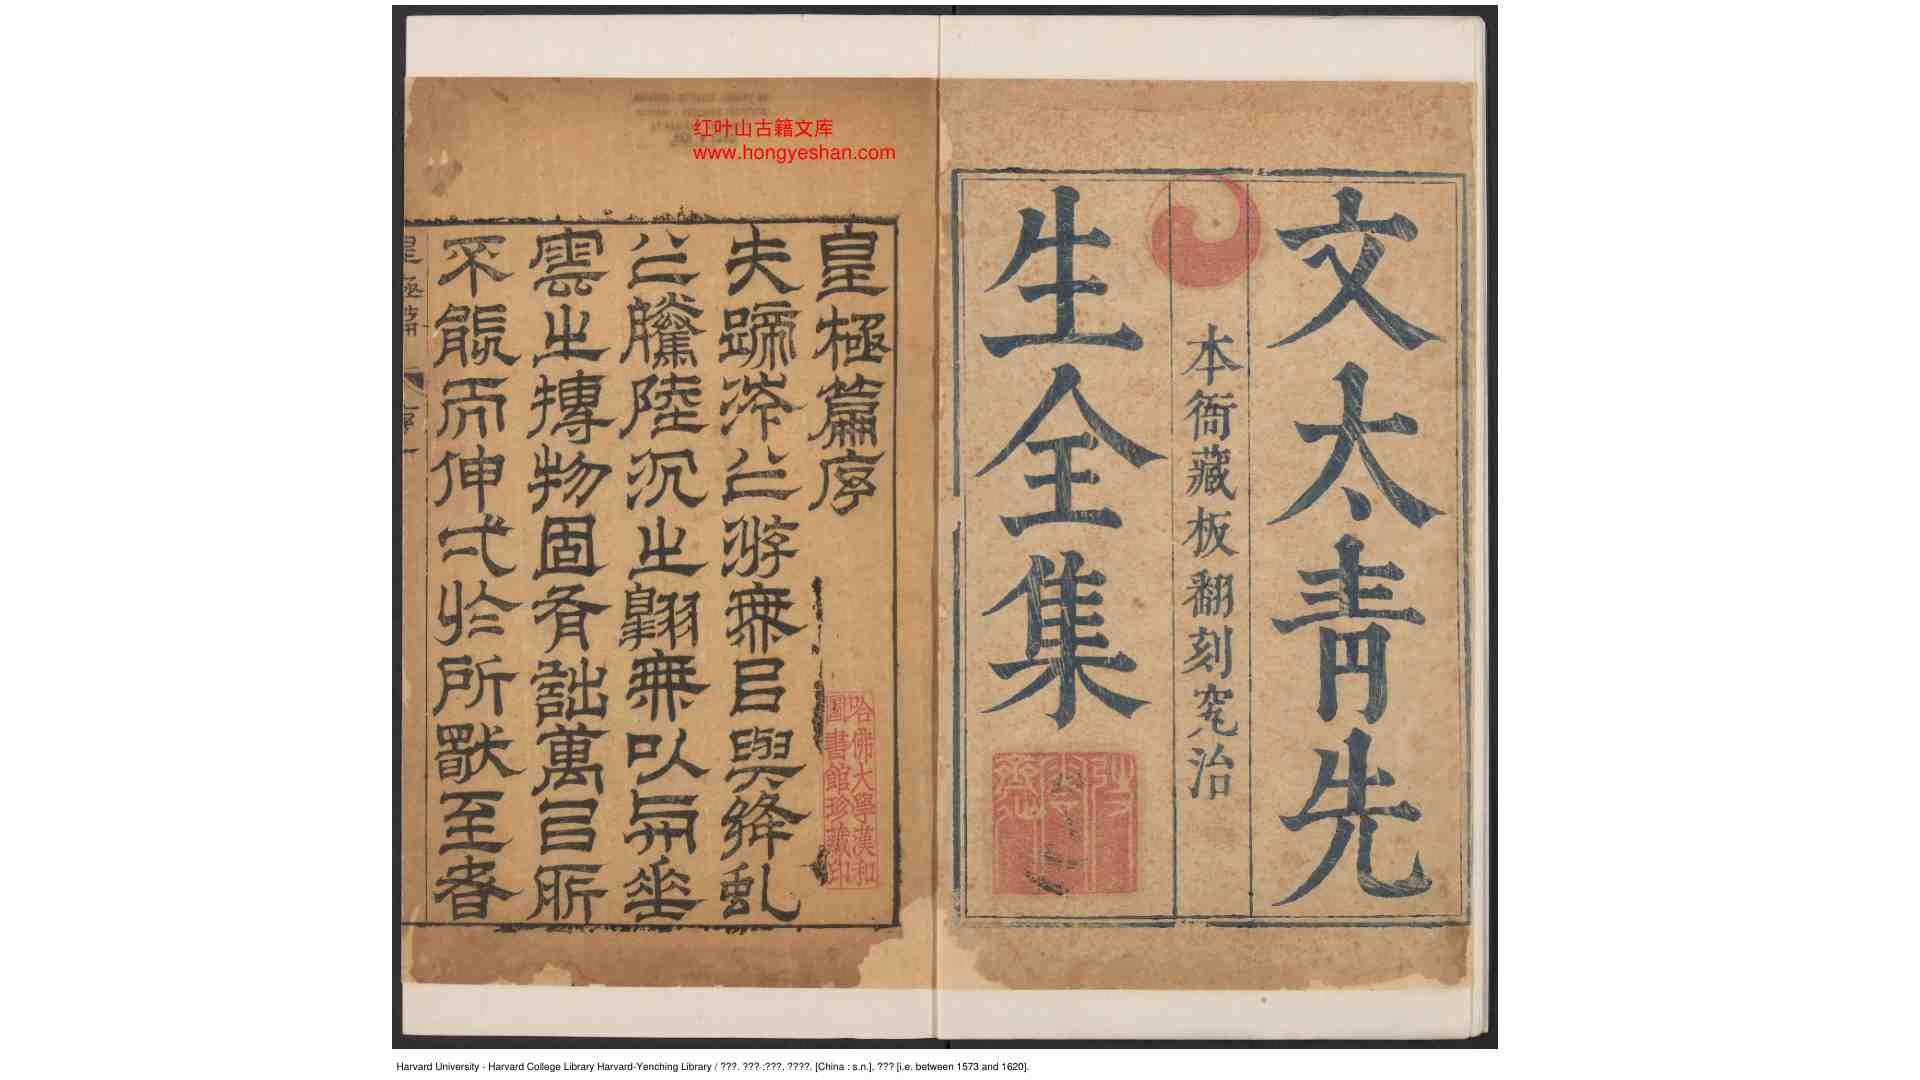 文太青先
本衙藏板翻刻究治
生全集
红叶山古籍文库
www.hongyeshan.com
皇極篇序
夫蹏涔亾游無㠯與絳虬
亾騰陸沉之翱無以與垂
雲之摶物固有詘萬㠯所
不能而伸弌於所獨至者
哈佛大學漢和
圖書館珍藏印
Harvard University - Harvard College Library Harvard-Yenching Library / ???. ??? :???, ????. [China : s.n.], ??? [i.e. between 1573 and 1620].